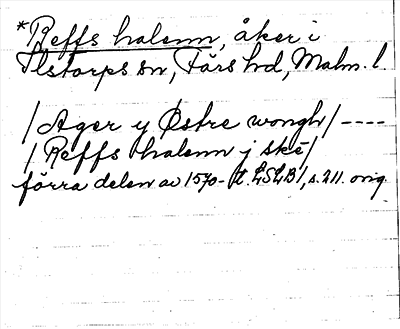 *Reffs halenn, åker i
Ilstorps sn, Färs hd, Malm. l.
/Ager y Østre wongh/ ----
/Reffs halenn j skē/
förra delen av 1570-t. LSLB1, s.211. orig